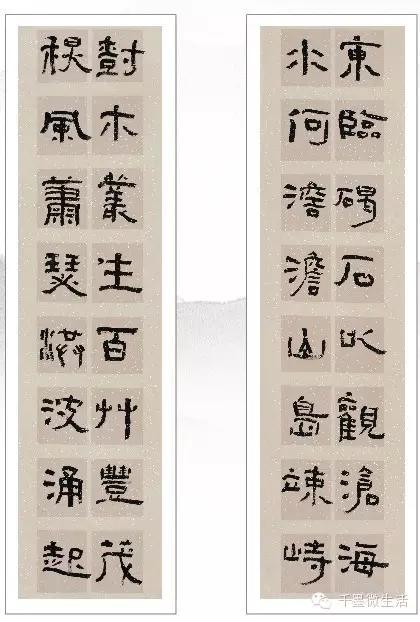 東臨碣石以觀滄海
水何澹澹山島竦峙
樹木叢生百艸豐茂
秋風蕭瑟洪波涌起
千墨微生活